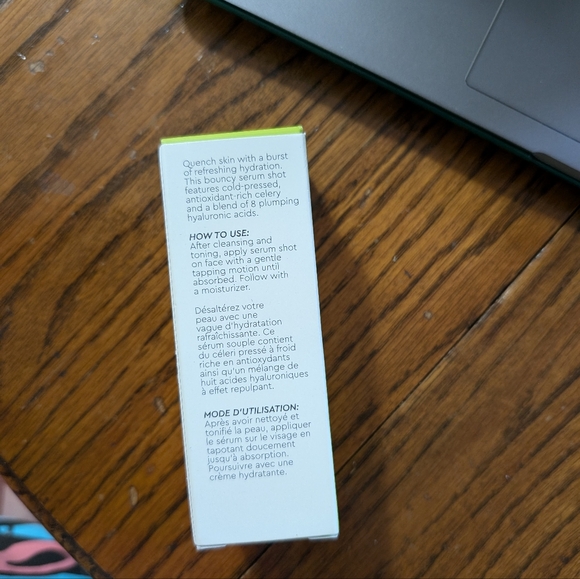 Quench skin with a burst
of refreshing hydration.
This bouncy serum shot
features cold-pressed,
antioxidant-rich celery
and a blend of 8 plumping
hyaluronic acids.
HOW TO USE:
After cleansing and
toning, apply serum shot
on face with a gentle
tapping motion until
absorbed. Follow with
a moisturizer.
Désaltérez votre
peau avec une
vague d'hydratation
rafraîchissante. Ce
sérum souple contient
du céleri pressé à froid
riche en antioxydants
ainsi qu'un mélange de
huit acides hyaluroniques
à effet repulpant.
MODE D'UTILISATION:
Après avoir nettoyé et
tonifié la peau, appliquer
le sérum sur le visage en
tapotant doucement
jusqu'à absorption.
Poursuivre avec une
crème hydratante.